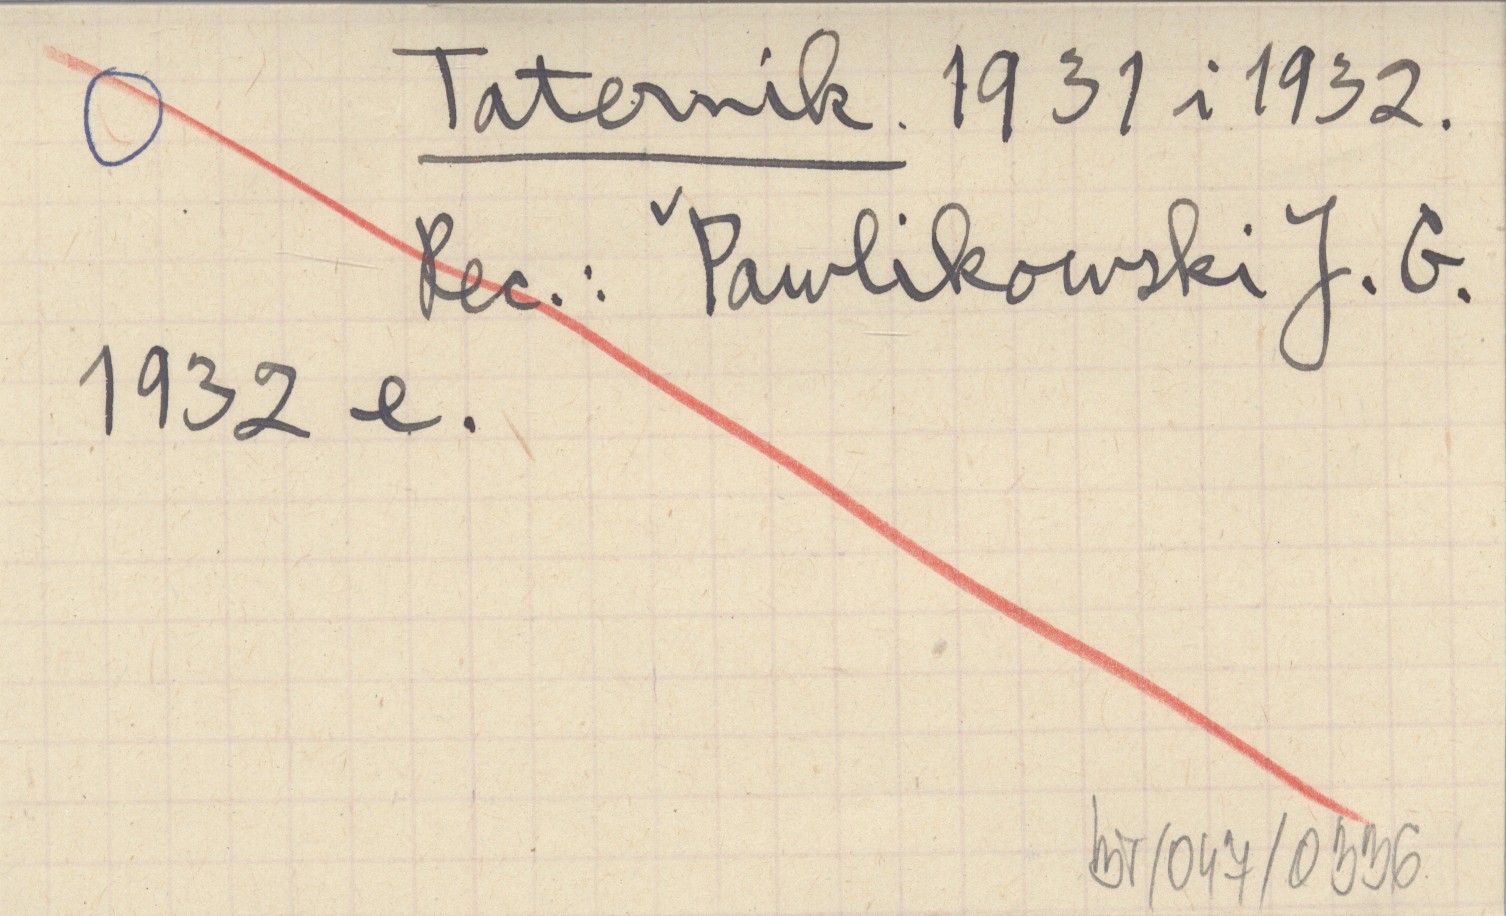 Taternik. 1931 i 1932.
Rec.: Pawlikowski J. G.
1932 e.
BT/047/0336